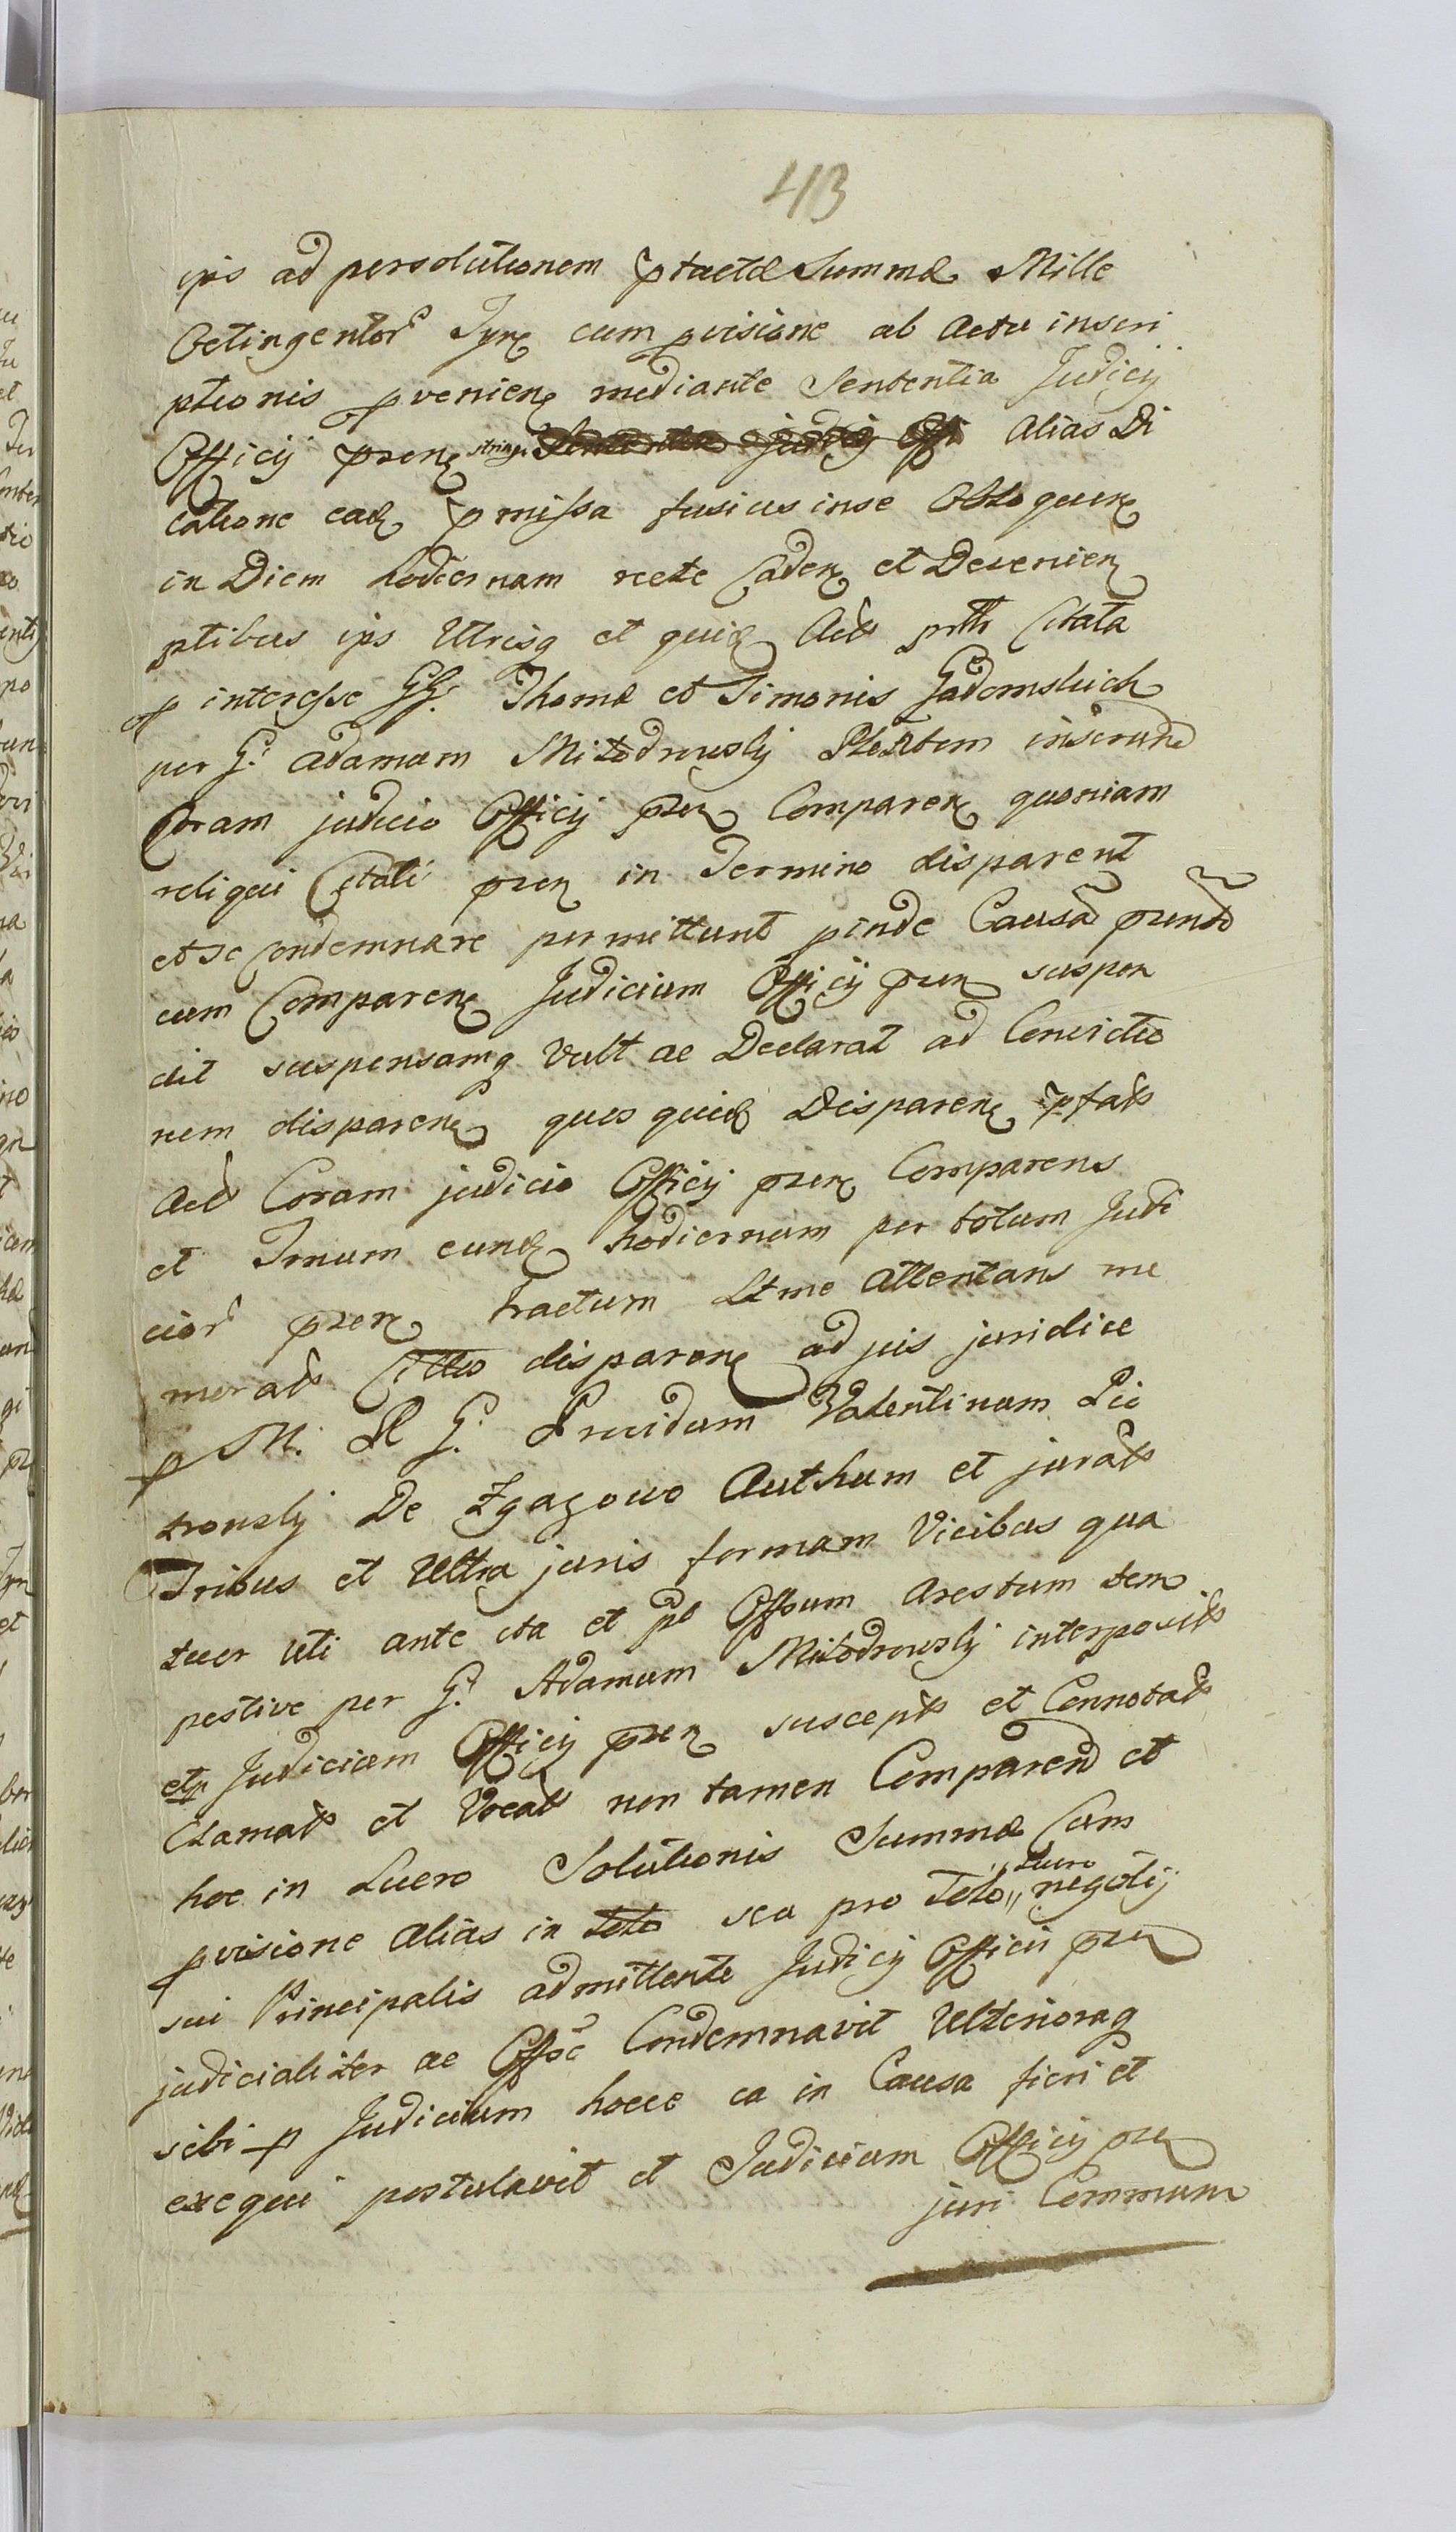 413
ips ad persolutionem ptactæ Summæ Mille
Octingentor Tyn cum pvisione ab Actu inscri
ptionis pvenien mediante Sententia Judicij
Officij przen string. Alias Di
catione ead pmissa fusius inse Obloquen
in Diem hodiernam recte Caden et Devenien
ptibus ips Utrisq et quid Act prtr Citata
p interesse GG. Thomæ et Simonis Gadomskich
per G. Adamum Mitodrowsky Plentem inserund
Coram judicio Officij przen Comparen quoniam
reliqui Citati przen in Termino disparent
et se Condemnare permittunt pinde Causam przent
cum Comparen Judicium Officij przen suspen
dit suspensamq Vult ac Declarat ad Convictio
nem disparen quos quid Disparen pfat
Act Coram judicio Officij przen Comparens
et Trnum eund hodiernum per totum Judi
cior przen tractum Ltme Attentans me
morat Citto disparen ad jus juridice
p M. & G. Prvidum Valentinum Pio
trowsky De Zgagowo Authum et jurat
Tribus et Ultra juris formam Vicibus qua
tuor uti ante ita et pt Offsum Arestum tem
pestive per G. Adamum Mitodrowsky interposit
etp Judicium Officij przen suscept et Connotat
Clamat et Vocat non tamen Comparend et
hoc in Lucro Solutionis Summæ Cum
pvisione Alias in toto seu pro Toto " Lucro negotij
sui Principalis admittente Judicij Officii przen
judicialiter ac Offoe Condemnavit Ulterioraq
sibi p Judicium hocce ea in Causa fieri et
exequi postulavit et Judicium Officij przen
juri Commun